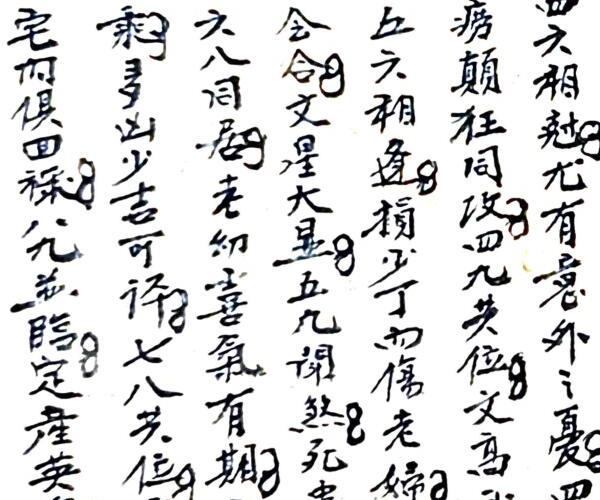 四六相尅尤有意外之憂四
痨顛狂同攻四九共位文高
五六相逢損少丁而傷老婦
会合文星大显五九煞死
六八同居老幼喜氣有期
剩多凶少吉可评七八共位
宅而俱回禄八九並臨定産英